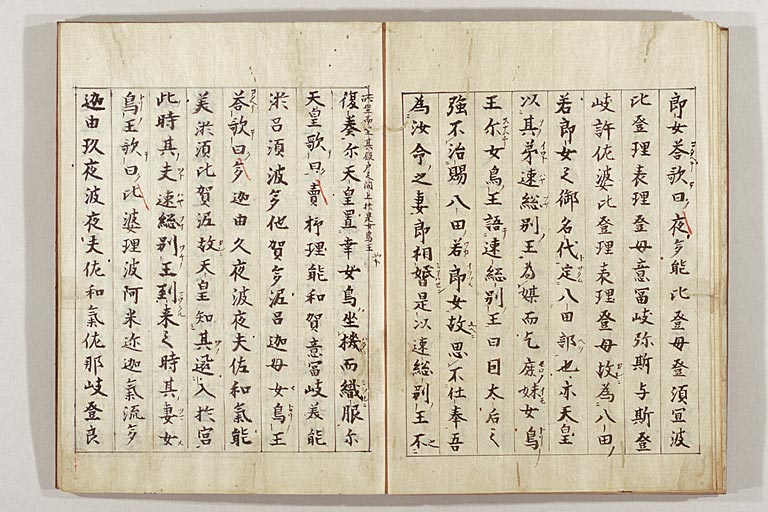 郎女荅歌曰夜多能比登母登須宜波
比登理袁理登母意冨岐弥斯与斯登
岐許佐婆比登理袁理登母故為八田
若郎女之御名代定八田部也亦天皇
以其弟速総別王為媒而乞庶妹女鳥
王尓女鳥王語速総別王曰因太后之
強不治賜八田若郎女故思不仕奉吾
為汝命之妻即相婚是以速総別王不
復奏尓天皇直幸女鳥坐機而織服尓
天皇歌曰賣杼理能和賀意冨岐美能
淤呂須波多他賀多泥呂迦母女鳥王
荅歌曰多迦由久夜波夜夫佐和氣能
美淤須比賀泥故天皇知其還入於宮
此時其夫速総別王到来之時其妻女
鳥王歌曰比婆理波阿米迩迦氣流多
迦由玖夜波夜夫佐和氣佐耶岐登良